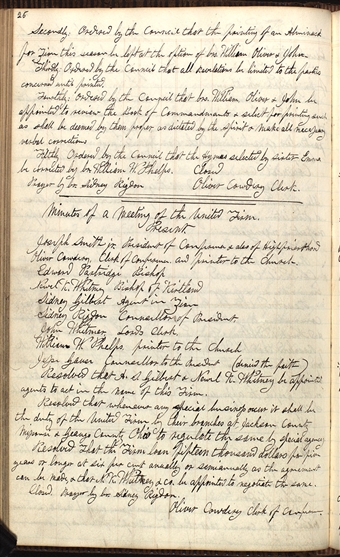 26
Secondly, Ordered by the Council that the printing of an Almanack
for Zion this season be left at the option of bro. William Oliver & John.
Thirdly Ordered by the Council that all revelations be limited to the parties
concerned until printed.
Fourthly, Ordered by the Council that bro. William Oliver & John be
appointed to review the Book of Commandments & select for printing such
as shall be deemed by them proper as dictated by the Spirit & make all necessary
verbal corrections
Fifthly Ordered by the Council that the Hymns selected by sister Emma
be corrected by br. William W. Phelps. Closed
Prayer by bro Sidney Rigdon Oliver Cowdery Clerk.
Minutes of a Meeting of the United Firm.
Present
Joseph Smith jr. President of Conference & also of High priesthood
Oliver Cowdery Clerk of Conference and printer to the Church.
Edward Partridge Bishop
Newel K. Whitney Bishop of Kirtland
Sidney Gilbert Agent in Zion
Sidney Rigdon Councillor of President
John Whitmer Lord's Clerk.
William W Phelps printer to the Church
Jesse Gause Councillor to the President (denied the faith)
Resolved that A S Gilbert & Newel K. Whitney be appointed
agents to act in the name of this Firm.
Resolved that whenever any special business occur it shall be
the duty of the United Firm by their branches at Jackson County
Missouri & Geauga County Ohio to regulate the same by special agency
Resolved That the Firm loan fifteen thousand dollars for five
years or longer at six per cent annually or semianually as the agreement
can be made & that N. K. Whitney & co. be appointed to negotiate the same.
Closed. Prayer by bro. Sidney Rigdon.
Oliver Cowdery Clerk of